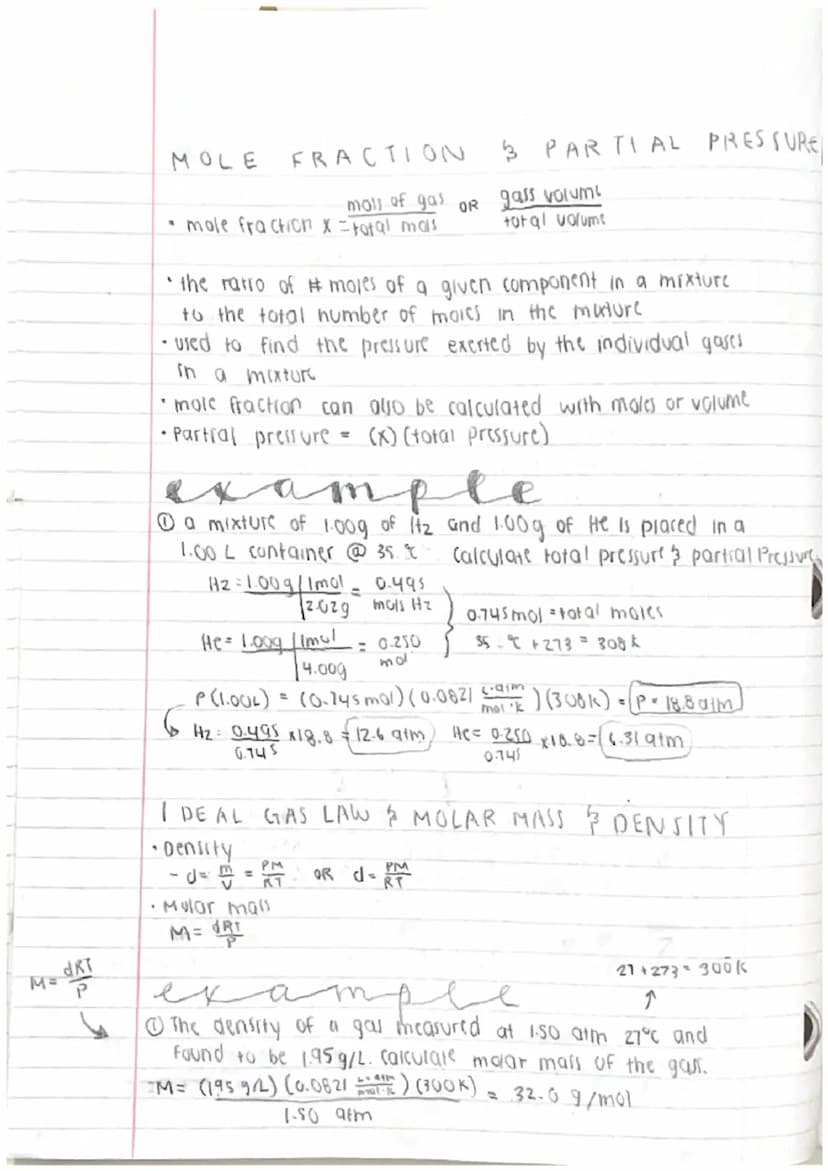 MOLE FRACTION & PARTIAL PRESSURE
• mole fraction X = mols of gas / total mols OR gass volume / total volume
• the ratio of # moles of a given component in a mixture
to the total number of moles in the mixture
• used to find the pressure exerted by the individual gases
in a mixture
• mole fraction can also be calculated with moles or volume
• Partial pressure = (X)(total pressure)
example
① a mixture of 1.00g of H2 and 1.00g of He is placed in a
1.00 L container @ 35.°C Calculate total pressure & partial Pressure
H2 = 1.00g | 1mol / 2.02g = 0.495 mols H2
0.745mol = total moles
He = 1.00g | 1mol / 4.00g = 0.250 mol
35.°C + 273 = 308k
P(1.00L) = (0.745mol)(0.0821 L·atm/mol·K)(308K) = P = 18.8atm
H2 = 0.495/0.745 x18.8 = 12.6 atm He = 0.250/0.745 x18.8 = 6.31 atm
IDEAL GAS LAW & MOLAR MASS & DENSITY
• Density
- d = m/V = PM/RT OR d = PM/RT
• Molar mass
M = dRT/P
27 + 273 = 300K
M = dRT/P
example
① The density of a gas measured at 1.50 atm 27°C and
found to be 1.95 g/L. Calculate molar mass of the gas.
M = (195 g/L)(0.0821 L·atm/mol·K)(300K) / 1.50 atm = 32.0 g/mol